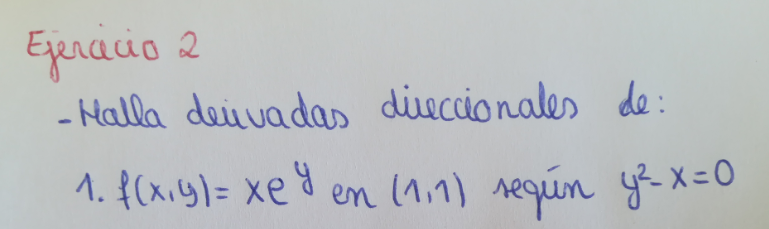 Ejercicio 2
- Halla derivadas direccionales de:
1. f(x,y)= xe^y en (1,1) según y²-x=0